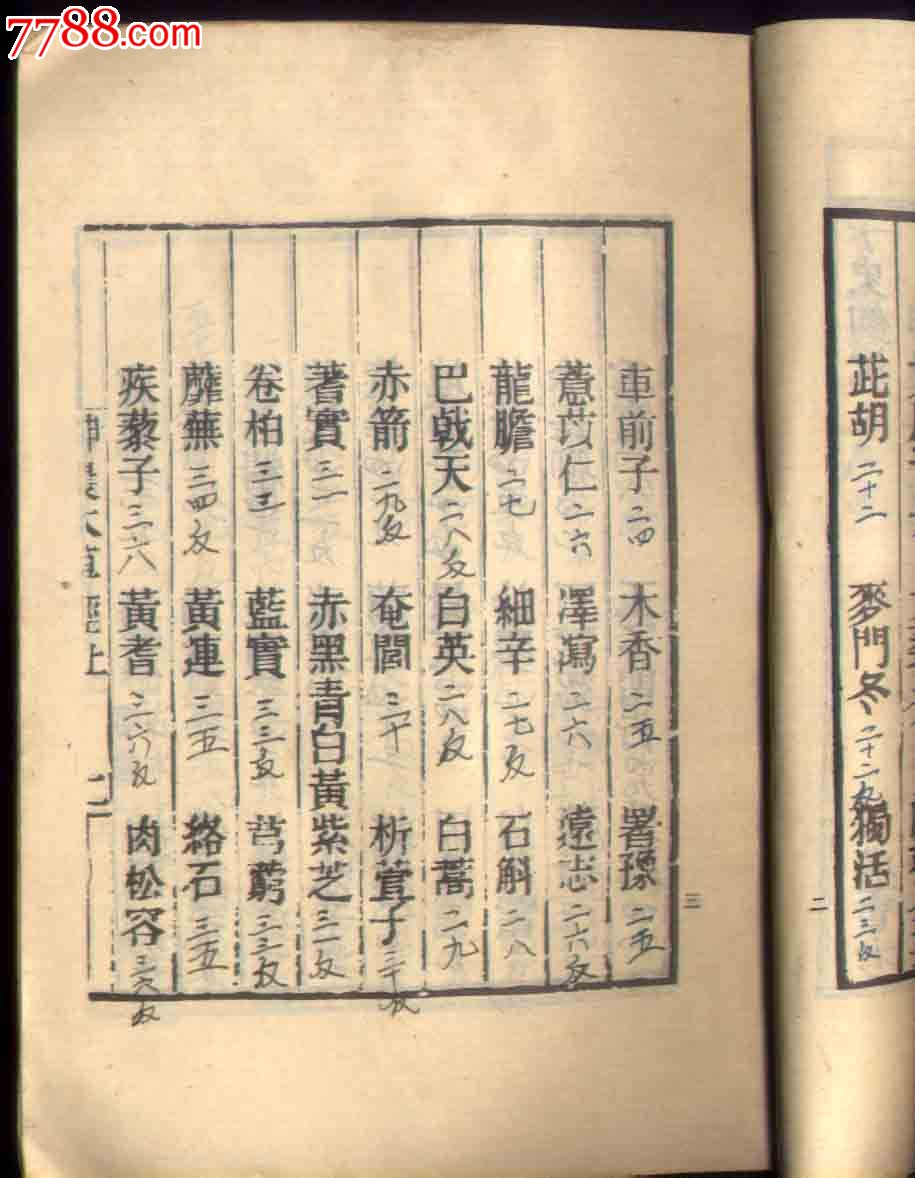 7788.com
茈胡 二十二 麥門冬 二十二反 獨活 二三反
二
車前子 二四 木香 二五 署豫 二五
薏苡仁 二六 澤瀉 二六 遠志 二六反
龍膽 二七 細辛 二七反 石斛 二八
巴戟天 二八反 白英 二八反 白蒿 二九
赤箭 二九反 奄閭 三十 析蓂子 三十反
蓍實 三一 赤黑青白黃紫芝 三一反
卷柏 三二 藍實 三二反 芎藭 三三反
蘼蕪 三四反 黃連 三五 絡石 三五
疾藜子 三六 黃耆 三六反 肉松容 三六反
神農本草經上
三